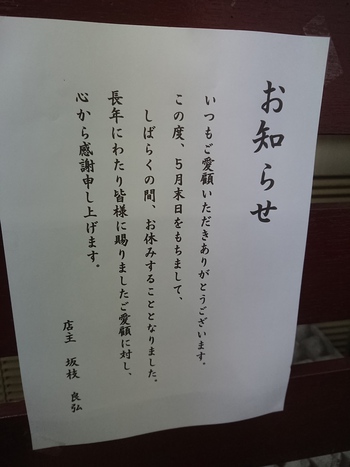 お知らせ
いつもご愛顧いただきありがとうございます。
この度、5月末日をもちまして、
しばらくの間、お休みすることとなりました。
長年にわたり皆様に賜りましたご愛顧に対し、
心から感謝申し上げます。
店主 坂枝 良弘